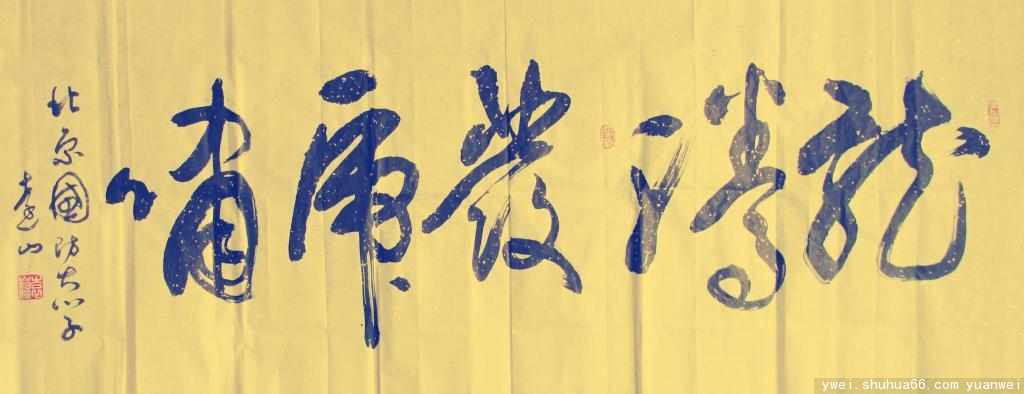 龍騰發虎嘯
北京國防大學
山
ywei.shuhua66.com yuanwei